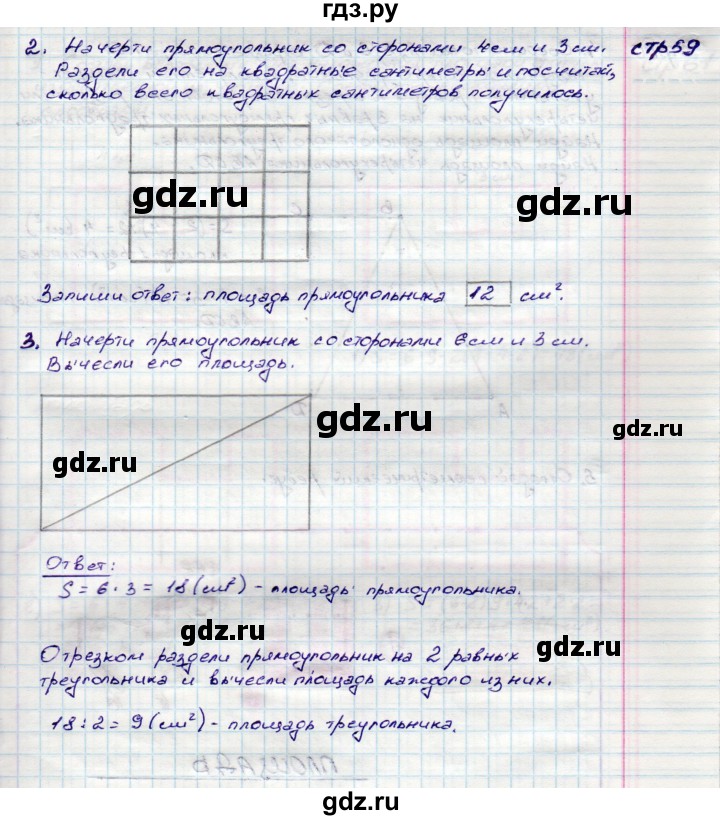 гдз.ру
2. Начерти прямоугольник со сторонами 4см и 3 см. стр59
Раздели его на квадратные сантиметры и посчитай,
сколько всего квадратных сантиметров получилось.
gdz.ru gdz.ru
Запиши ответ: площадь прямоугольника 12 см².
3. Начерти прямоугольник со сторонами 6см и 3 см.
Вычесли его площадь.
gdz.ru gdz.ru
gdz.ru
Ответ:
S = 6 · 3 = 18 (см²) - площадь прямоугольника.
gdz.ru gdz.ru
Отрезком раздели прямоугольник на 2 равных
треугольника и вычесли площадь каждого из них.
18 : 2 = 9 (см²) - площадь треугольника.
ПЛОЩАДЬ
gdz.ru
gdz.ru